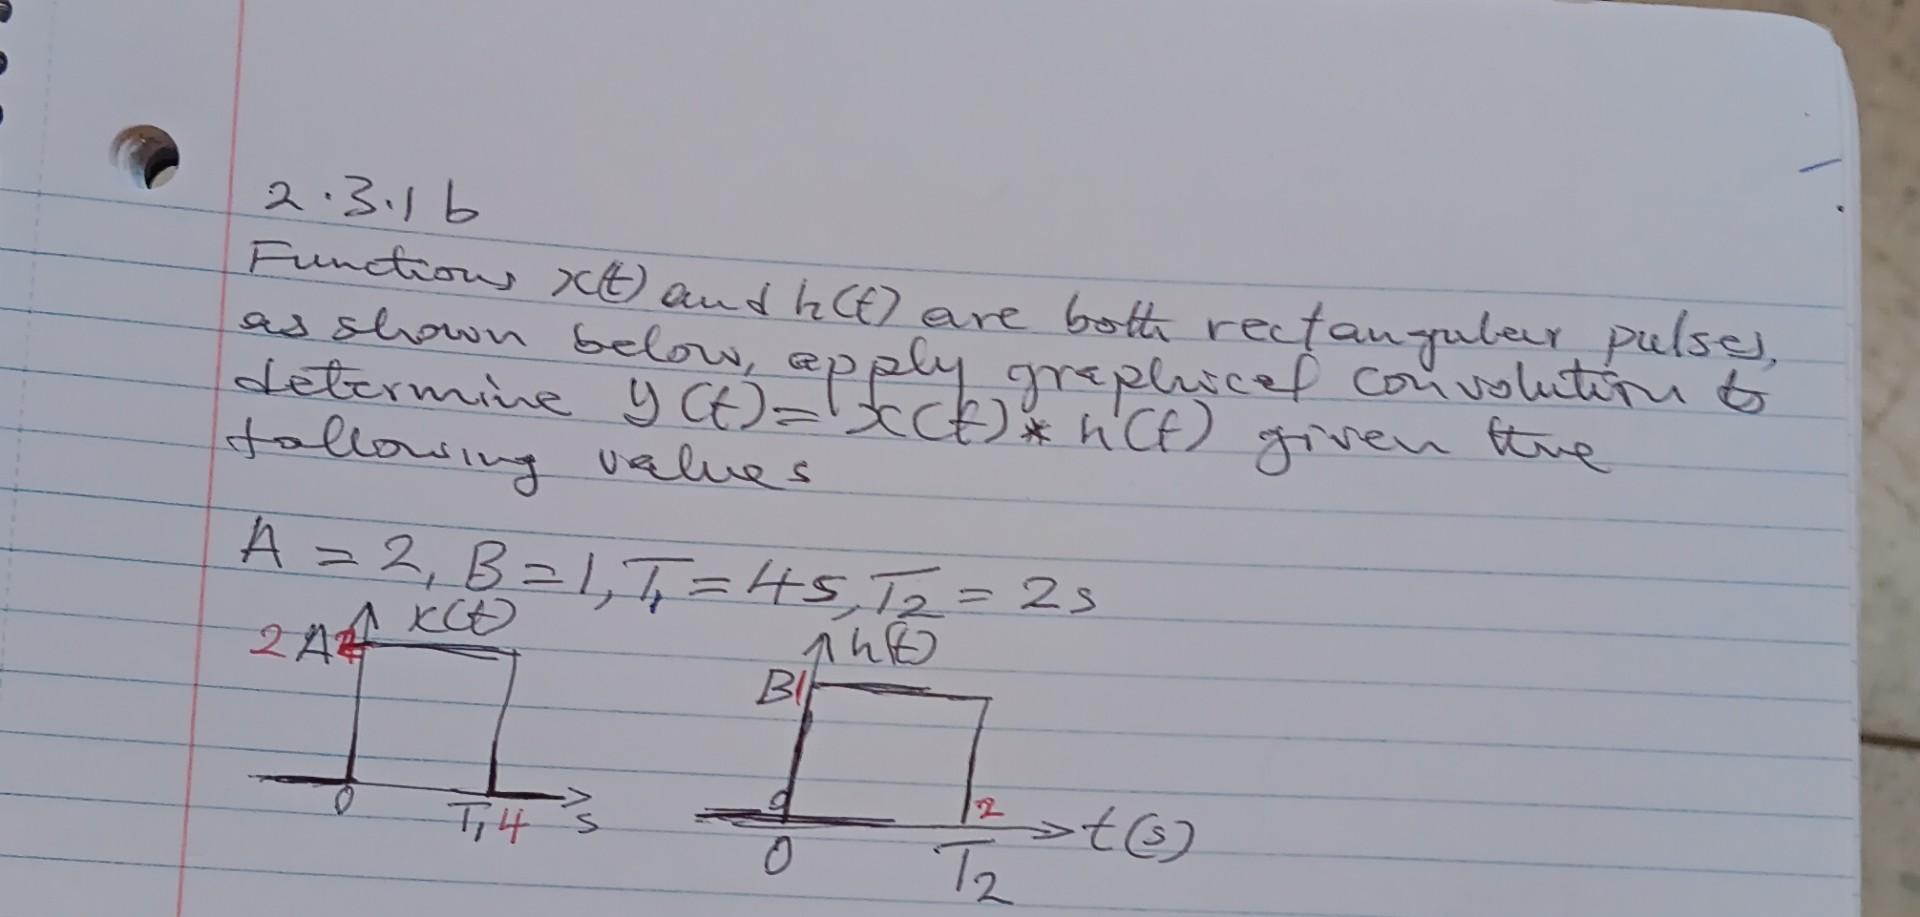 2.3.1 b
Functions x(t) and h(t) are both rectangular pulses,
as shown below, apply graphical convolution to
determine y(t) = x(t) * h(t) given the
following values
A = 2, B = 1, T1 = 4s, T2 = 2s
x(t)
2 A
0 T1 4 s
h(t)
B 1
0 2 t(s)
0 T2